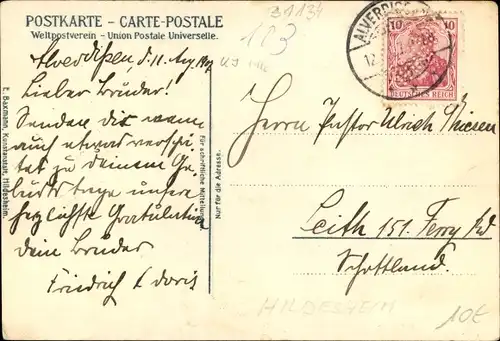 POSTKARTE – CARTE-POSTALE
Weltpostverein – Union Postale Universelle.
31A34
113
Alverdissen, d. 11. Aug. 190
Lieber Bruder!
Senden dir wenn
auch etwas verspä-
tet zu deinem Ge-
burtstage unsere
herzlichste Gratulation
dein Bruder
Friedrich & Doris
Für schriftliche Mitteilung.
Nur für die Adresse.
E. Baxmann, Kunstanstalt, Hildesheim.
ALVERDISSEN
10 10
DEUTSCHES REICH
Herrn Pastor Ulrich Thiesen
Leith 151. Ferry Rd
Schottland.
HILDESHEIM
10€